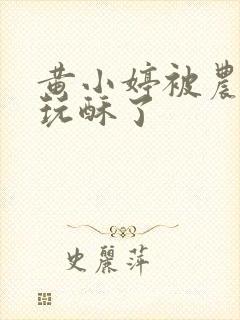 黄小婷被農
玩酥了
史麗萍